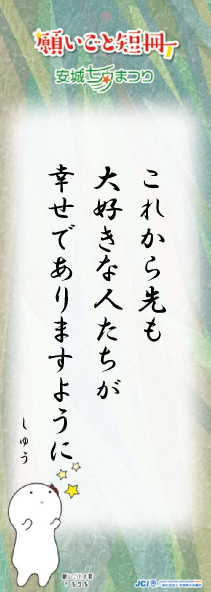 願いごと短冊
安城七夕まつり
これから先も
大好きな人たちが
幸せでありますように
しゅう
JCI